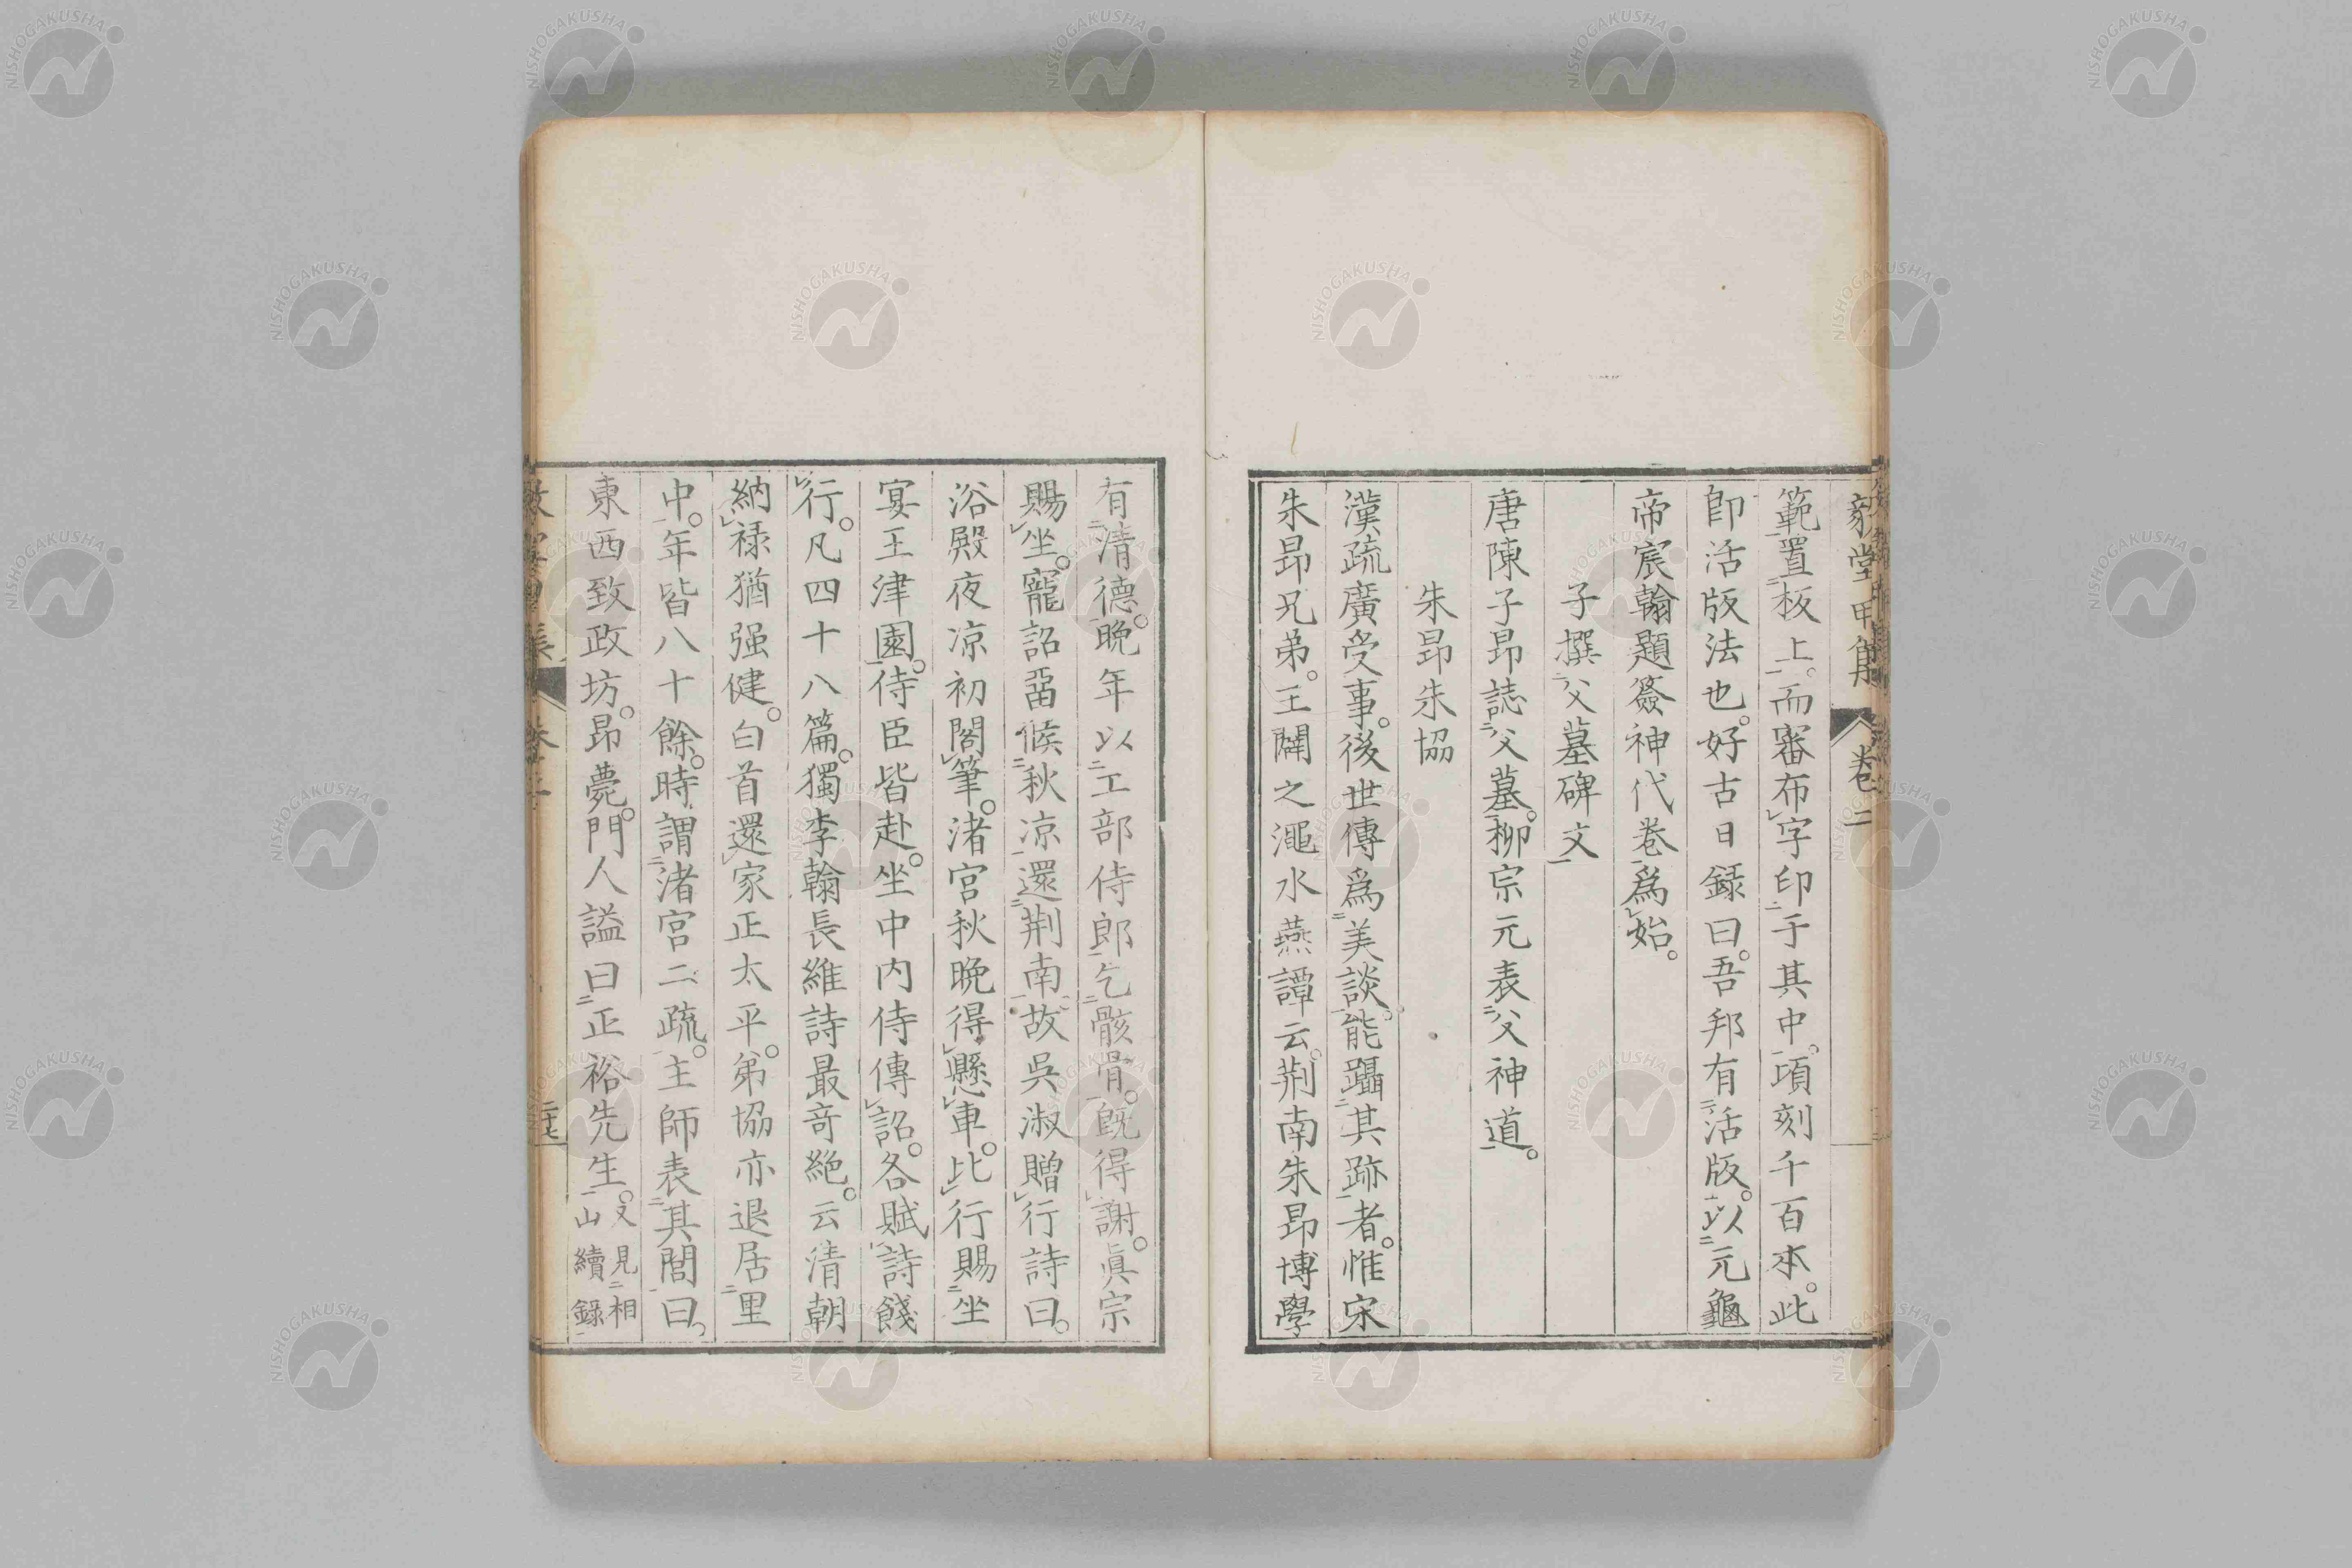 毅堂甲集 卷二
範置板上。而審布字印于其中。項刻千百本。此
卽活版法也。好古日録曰。吾邦有活版。以元龜
帝宸翰題簽神代卷爲始。
子撰父墓碑文
唐陳子昂誌父墓。柳宗元表父神道。
朱昂朱協
漢疏廣受事。後世傳爲美談。能躡其跡者。惟宋
朱昂兄弟。王闢之澠水燕譚云。荆南朱昂博學
有清德。晩年以工部侍郎乞骸骨。旣得謝。眞宗
賜坐。寵詔畱候秋凉還荆南。故吳淑贈行詩曰。
浴殿夜凉初閣筆。渚宮秋晩得懸車。比行賜坐
宴王津園。侍臣皆赴。坐中内侍傳詔。各賦詩餞
行。凡四十八篇。獨李翰長維詩最奇絶。云清朝
納禄猶强健。白首還家正太平。弟協亦退居里
中。年皆八十餘。時謂渚宮二疏。主師表其閭曰。
東西致政坊。昂薨。門人謚曰正裕先生。又見相山續録
二十七